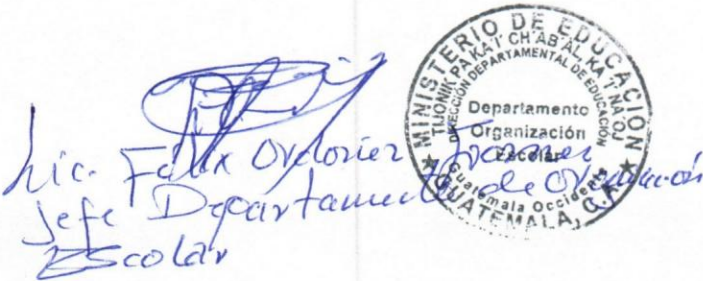 Lic. Felix Ordoñez
Jefe Departamento de Organización
Escolar
MINISTERIO DE EDUCACIÓN
TIJONIK PA KA T CH'AB'AL, KA T NA'OJ
DIRECCIÓN DEPARTAMENTAL DE EDUCACIÓN
Departamento
Organización
Escolar
Guatemala Occidente
GUATEMALA, C.A.